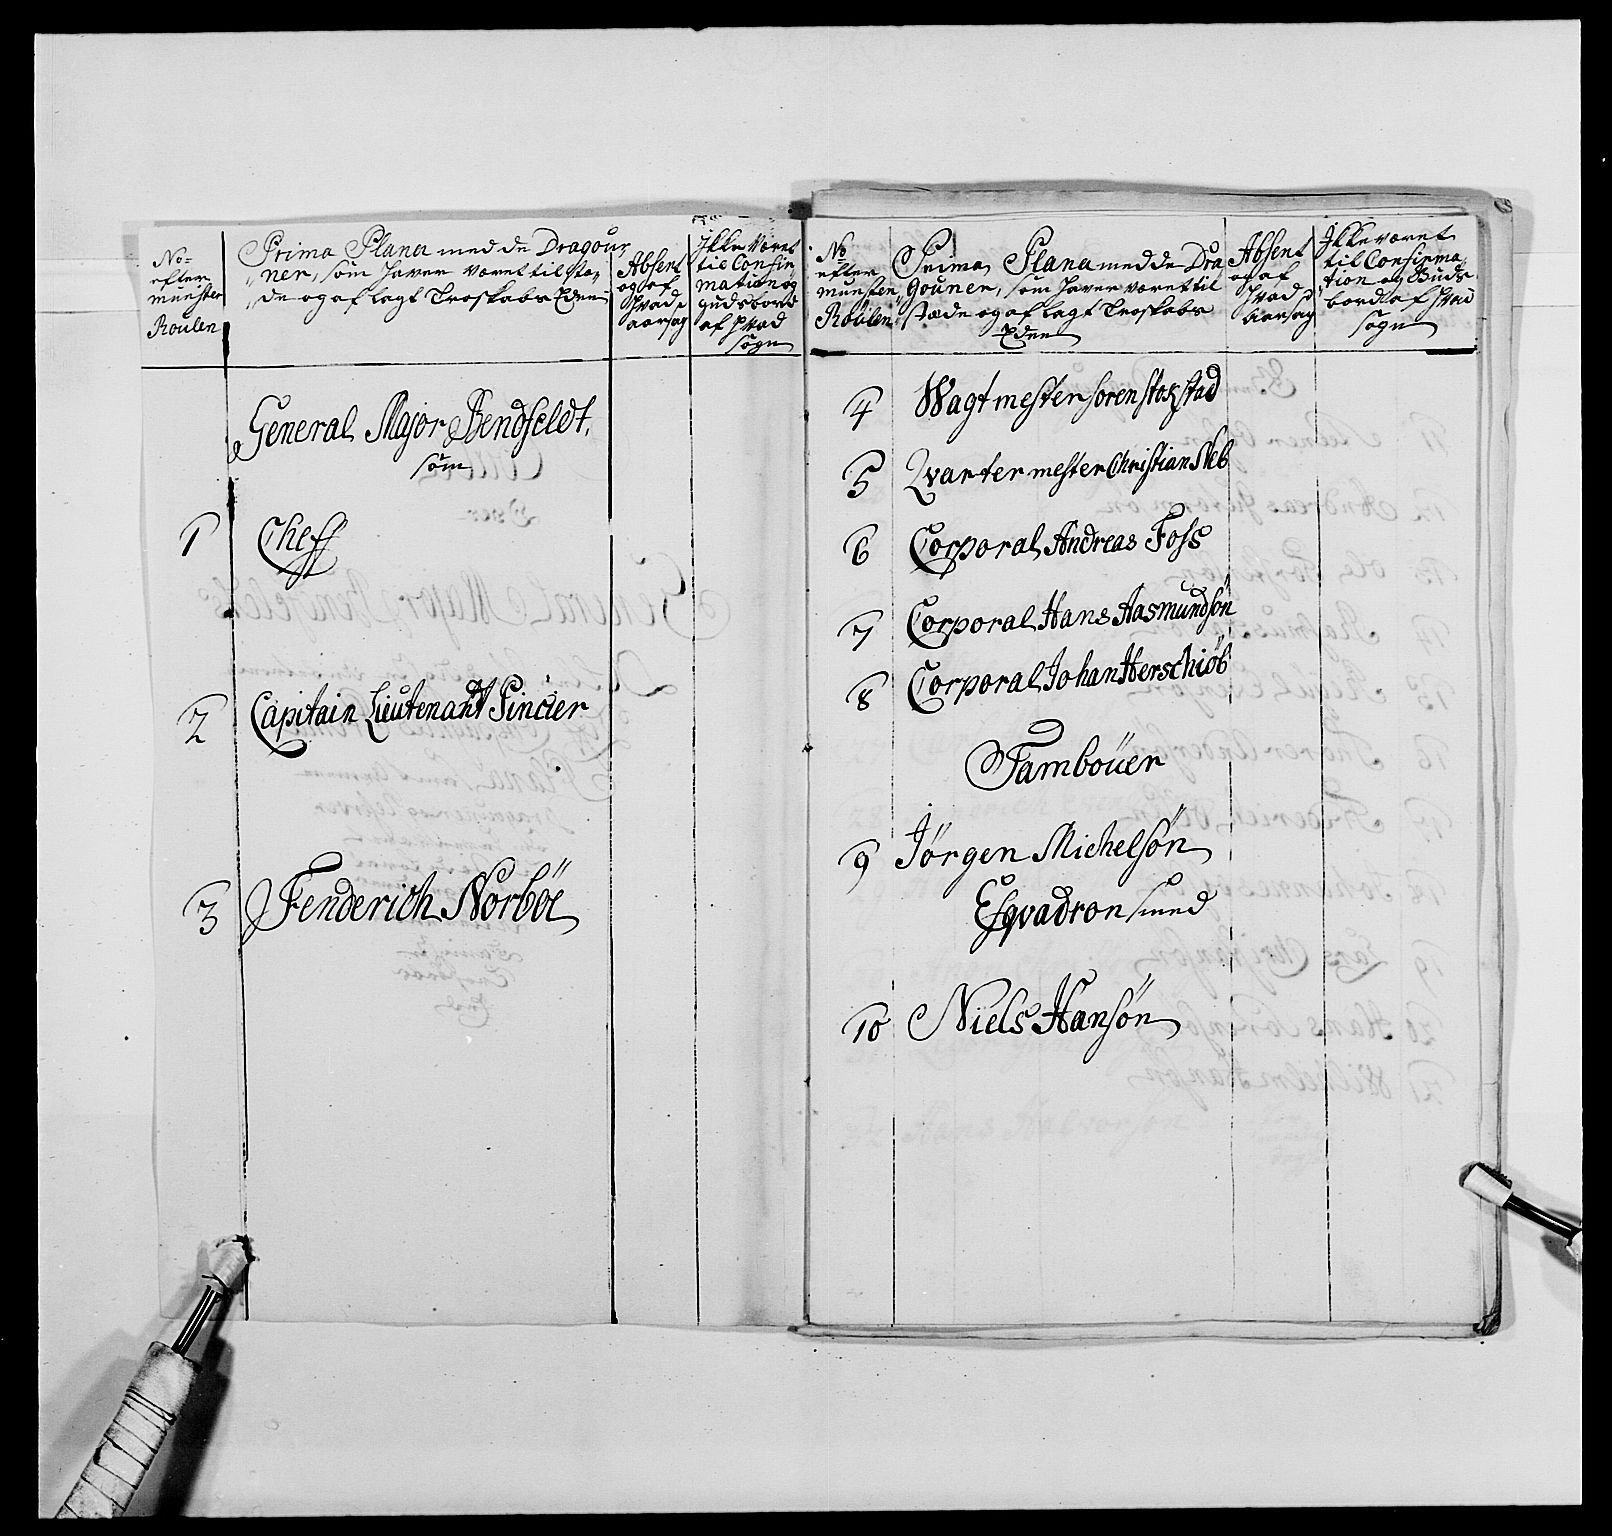 No=
efter
munster
Roulen
Prima Plana med de Dragour,
ner, som haver været til sta,
de og aflagt Troskabs Eden
Absent
og af
hvad
aarsag
Ikke været
til Confir
mation og
gudsbord
af hvad
sogn
General Major Bendfeldt,
som
1 Cheff
2 Capitain Lieutenant Sincler
3 Fenderich Norböe
No
efter
munster,
Roulen
Prima Plana med de Dra
Gouner, som haver været til
stæde og aflagt Troskabs
Eden
Absent
og af
hvad
Aarsag
Ikke været
til Confirma,
tion og Guds
bord af hvad
sogn
4 Wagtmester Soren Stokstad
5 Qvartermester Christian Neb
6 Corporal Andreas Foss
7 Corporal Hans Aasmundsön
8 Corporal Johan Herschiöb
Tamboüer
9 Jörgen Michelsön
Esqvadron smed
10 Niels Hansön